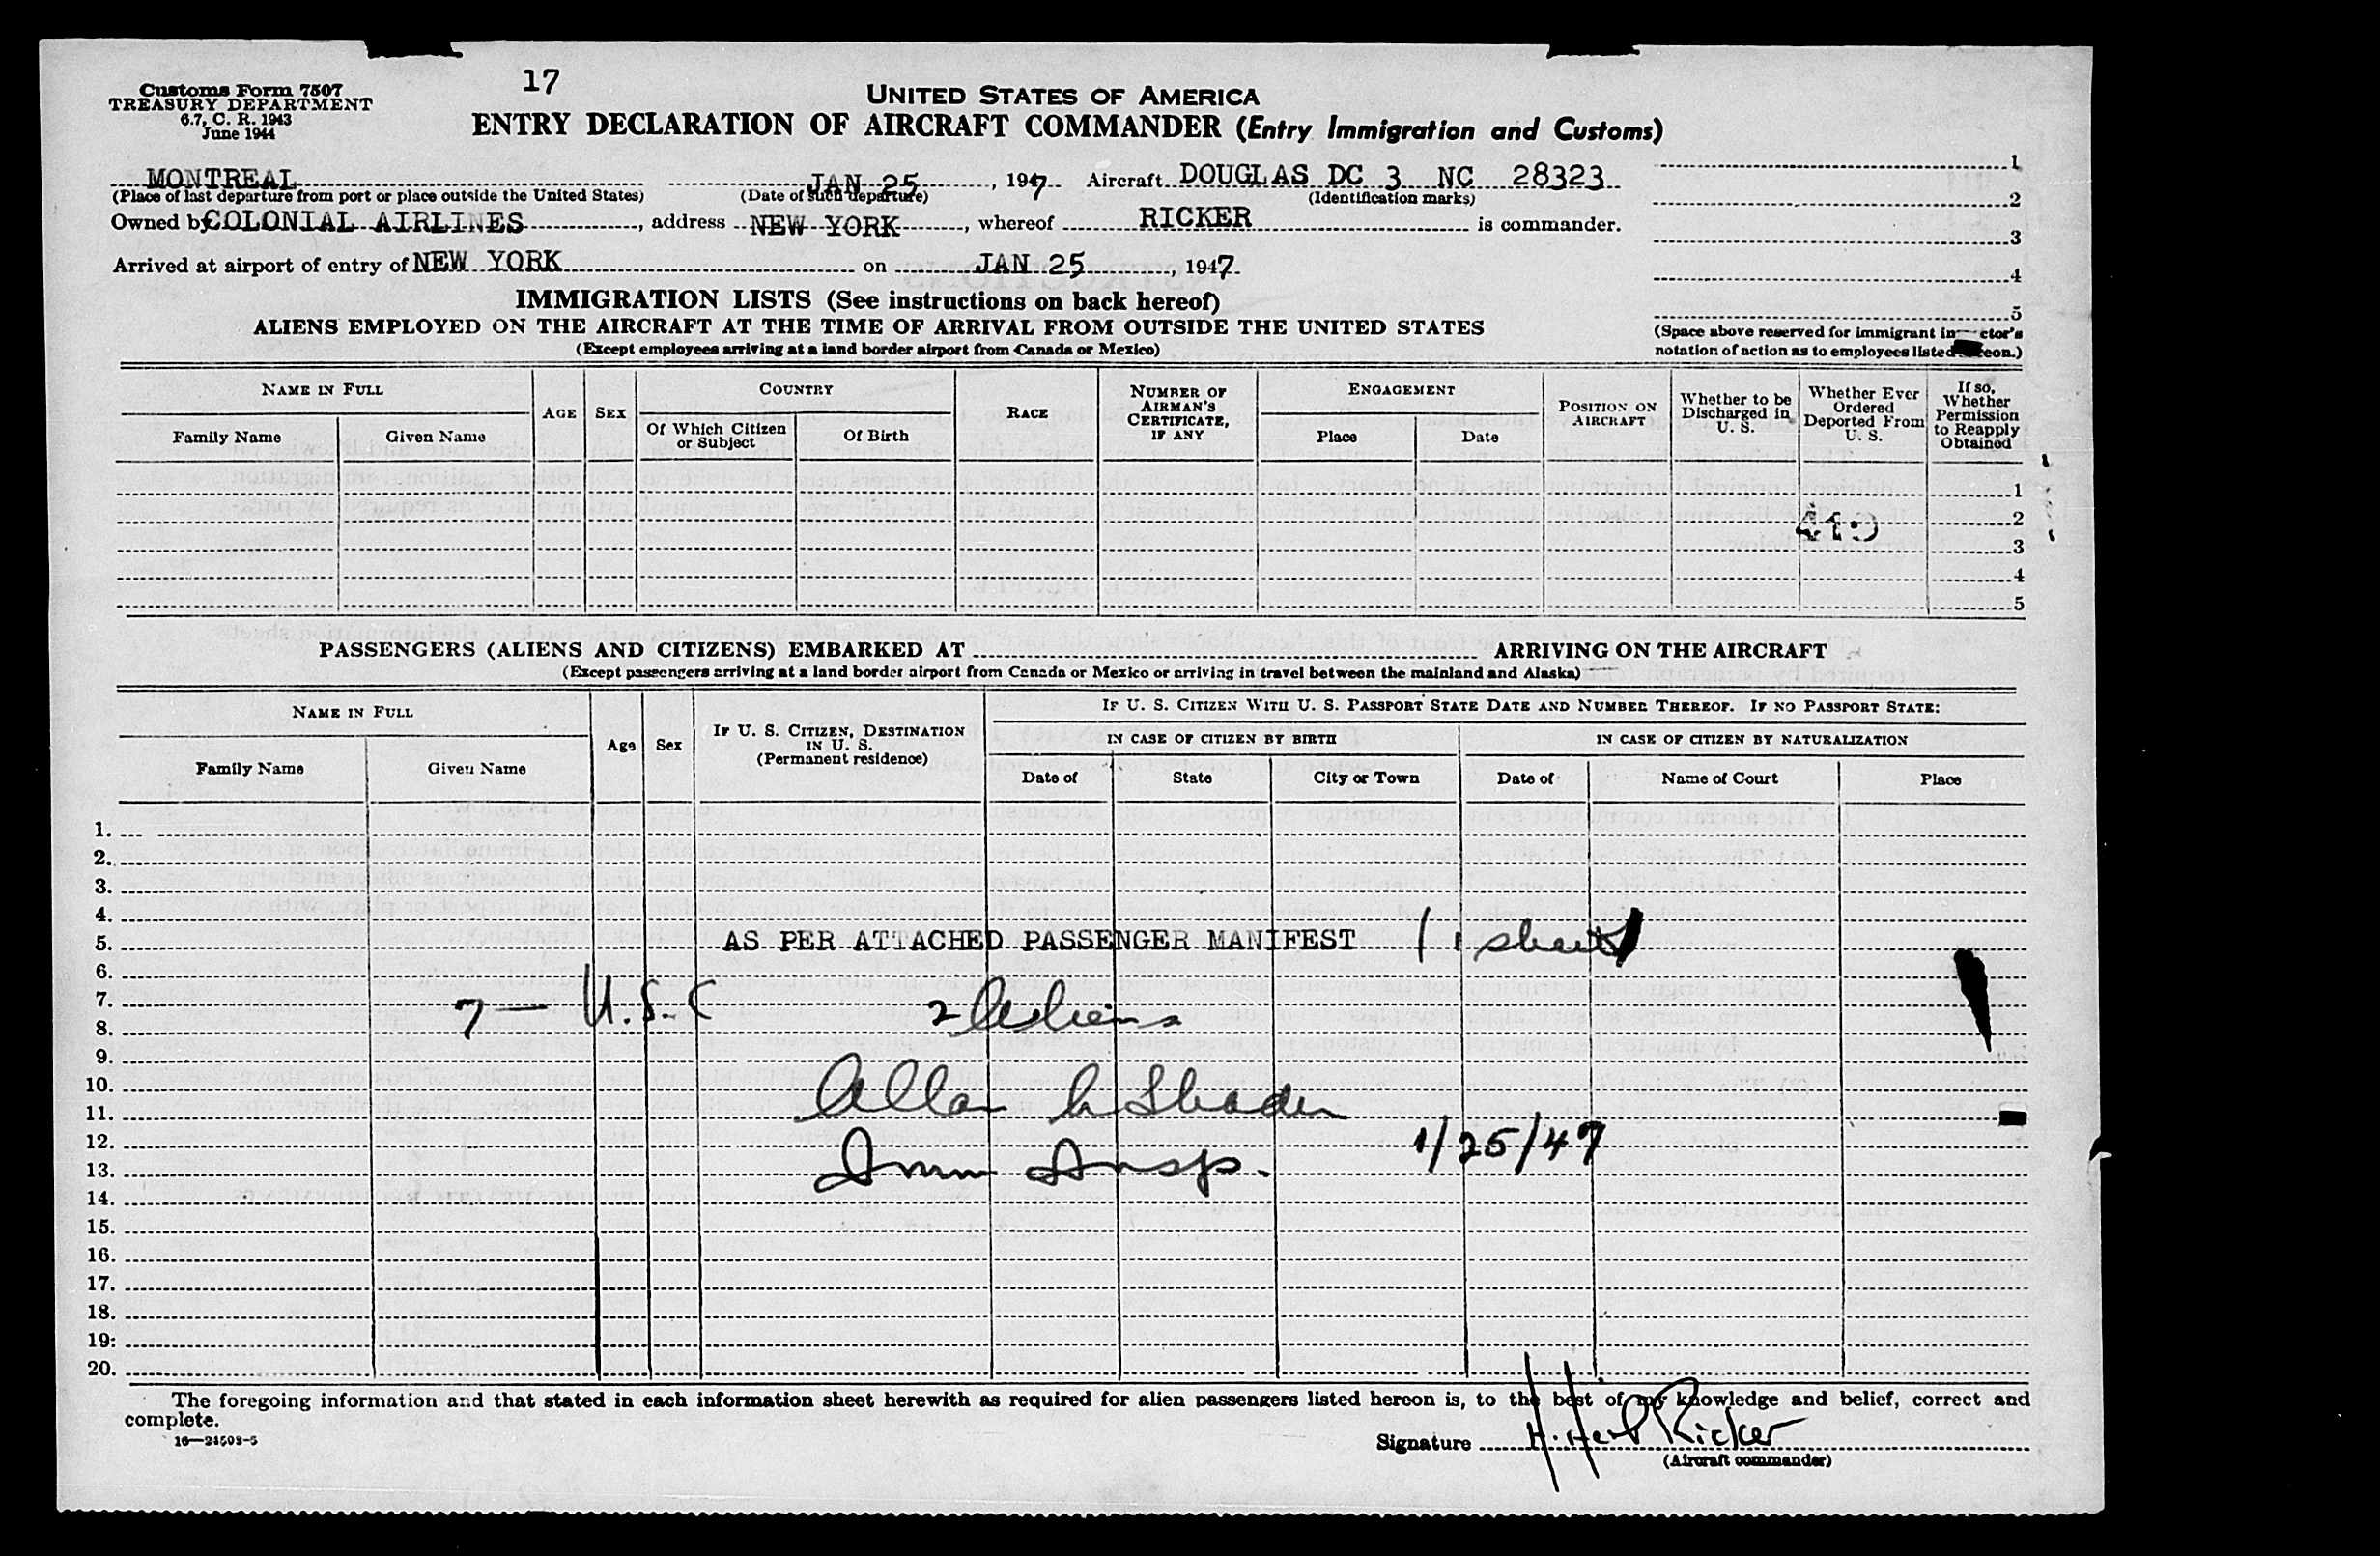 Customs Form 7507
TREASURY DEPARTMENT
6.7, C. R. 1943
June 1944
17
UNITED STATES OF AMERICA
ENTRY DECLARATION OF AIRCRAFT COMMANDER (Entry Immigration and Customs)
MONTREAL JAN 25, 1947 Aircraft DOUGLAS DC 3 NC 28323
(Place of last departure from port or place outside the United States) (Date of such departure) (Identification marks)
Owned by COLONIAL AIRLINES, address NEW YORK, whereof RICKER is commander.
Arrived at airport of entry of NEW YORK on JAN 25, 1947
1
2
3
4
5
(Space above reserved for immigrant
notation of action as to employees listed
IMMIGRATION LISTS (See instructions on back hereof)
ALIENS EMPLOYED ON THE AIRCRAFT AT THE TIME OF ARRIVAL FROM OUTSIDE THE UNITED STATES
(Except employees arriving at a land border airport from Canada or Mexico)
NAME IN FULL
Family Name
Given Name
AGE
SEX
COUNTRY
Of Which Citizen
or Subject
Of Birth
RACE
NUMBER OF
AIRMAN'S
CERTIFICATE,
IF ANY
ENGAGEMENT
Place
Date
POSITION ON
AIRCRAFT
Whether to be
Discharged in
U. S.
Whether Ever
Ordered
Deported From
U. S.
If so,
Whether
Permission
to Reapply
Obtained
1
2
3
4
5
PASSENGERS (ALIENS AND CITIZENS) EMBARKED AT ARRIVING ON THE AIRCRAFT
(Except passengers arriving at a land border airport from Canada or Mexico or arriving in travel between the mainland and Alaska)
NAME IN FULL
Family Name
Given Name
Age
Sex
IF U. S. CITIZEN, DESTINATION
IN U. S.
(Permanent residence)
IF U. S. CITIZEN WITH U. S. PASSPORT STATE DATE AND NUMBER THEREOF. IF NO PASSPORT STATE:
IN CASE OF CITIZEN BY BIRTH
Date of
State
City or Town
IN CASE OF CITIZEN BY NATURALIZATION
Date of
Name of Court
Place
1.
2.
3.
4.
5. AS PER ATTACHED PASSENGER MANIFEST
6.
7. 7 — U.S.C 2 Aliens
8.
9.
10.
11. Allan
12. 1/25/47
13. Imm Insp.
14.
15.
16.
17.
18.
19:
20.
The foregoing information and that stated in each information sheet herewith as required for alien passengers listed hereon is, to the best of my knowledge and belief, correct and
complete.
16—24503-5
Signature H. Ricker
(Aircraft commander)